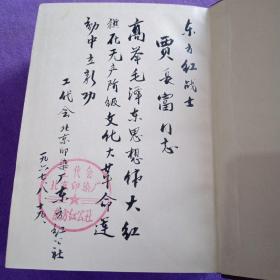 东方红战士
贾长富同志
高举毛泽东思想伟大红
旗在无产阶级文化大革命运
动中立新功
工代会北京印染厂东方红公社
一九六七、八、十九、
工代会
北京印染厂
东方红公社